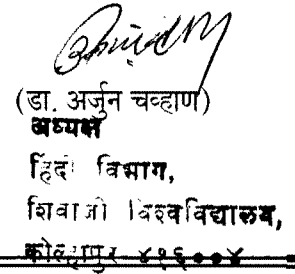 (डा. अर्जुन चव्हाण)
अध्यक्ष
हिंदी विभाग,
शिवाजी विश्वविद्यालय,
कोल्हापुर ४१६००४